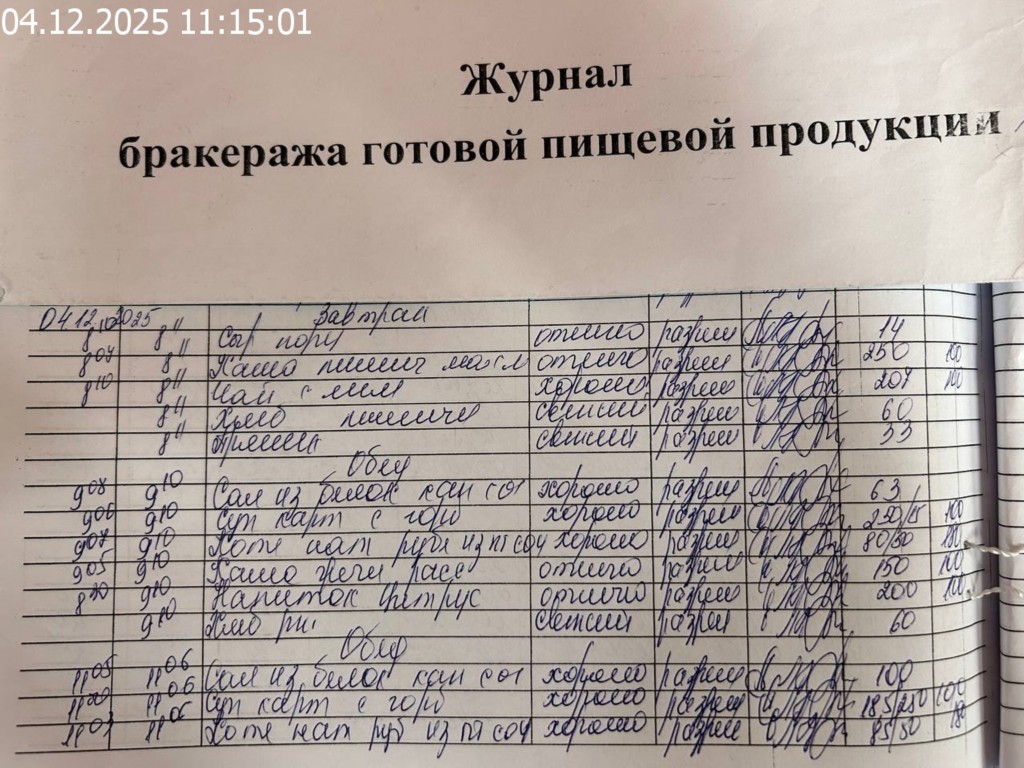 04.12.2025 11:15:01
Журнал
бракеража готовой пищевой продукции
04.12.2025 Завтрак
8 11 Сыр порц отлично разреш 14
8 07 8 11 Каша пшенич масл отлично разреш 250 100
8 10 8 11 Чай с лим хорошо разреш 207 100
8 11 Хлеб пшенич свежий разреш 60
8 11 свежий разреш 33
Обед
9 08 9 10 Сал из белок кап со хорошо разреш 63
9 06 9 10 Суп карт с горо хорошо разреш 250/15 100
9 07 9 10 Котл нат руб из пт соу хорошо разреш 80/30 100
9 05 9 10 Каша греч расс отлично разреш 150 100
9 10 Напиток цитрус отлично разреш 200 100
9 10 Хлеб рж свежий разреш 60
Обед
11 05 11 06 Сал из белок кап со хорошо разреш 100
11 00 11 06 Суп карт с горо хорошо разреш 100
11 01 11 06 Котл нат руб из пт соу хорошо разреш